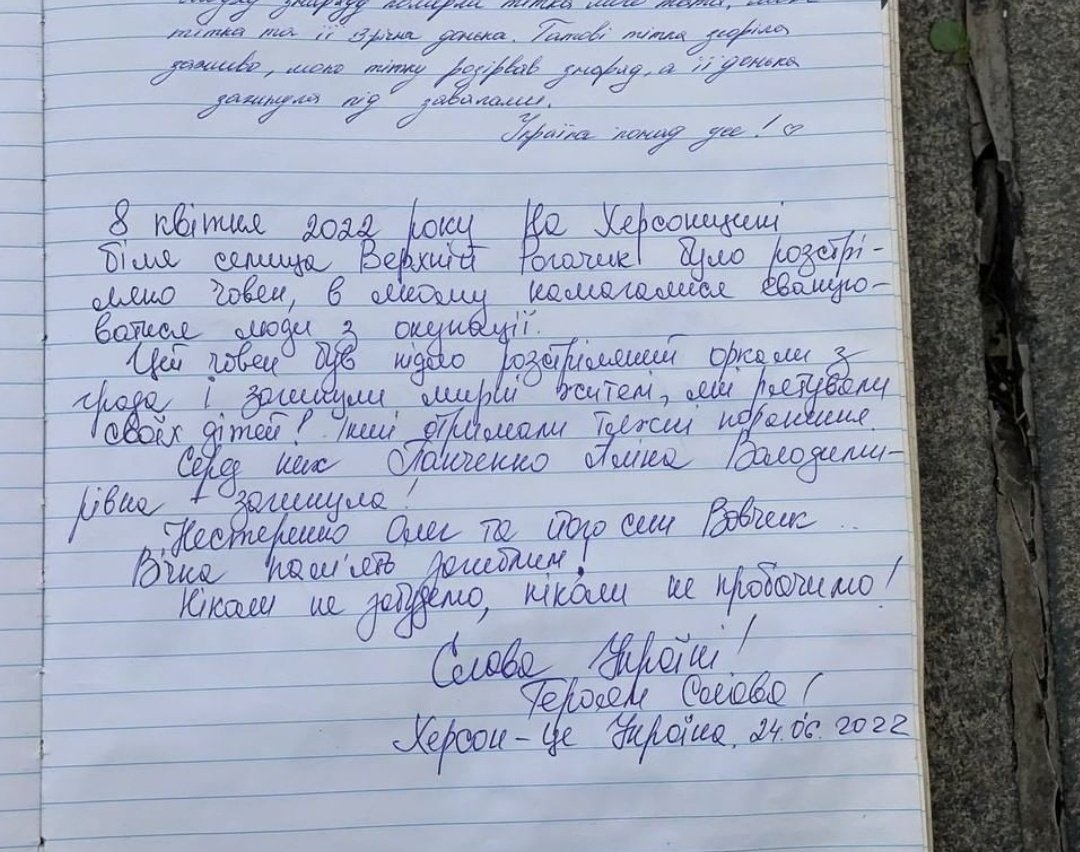 снаряду померли тітка мого тата, моя
тітка та її 3 річна донька. Татові тітка згоріла
заживо, мою тітку розірвав снаряд, а її донька
загинула під завалами.
Україна понад усе! ♡
8 квітня 2022 року на Херсонщині
біля селища Верхній Рогачик було розстрі-
ляно човен, в якому намагалися евакую-
ватися люди з окупації.
Цей човен був підло розстріляний орками з
града і загинули мирні жителі, які рятували
своїх дітей! Інші отримали тяжкі поранення.
Серед них Панченко Аліна Володими-
рівна - загинула!
Нестеренко Олег та його син Вовчик...
Вічна пам'ять загиблим!
Ніколи не забудемо, ніколи не пробачимо!
Слава Україні!
Героям Слава!
Херсон - це Україна. 24.06.2022